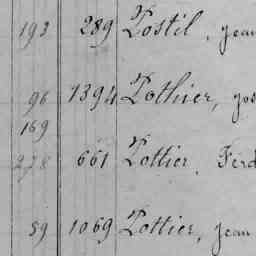 193 289 Postil, jean
96 1394 Pothier, jos
169
278 661 Pottier, Ferd
59 1069 Pottier, jean